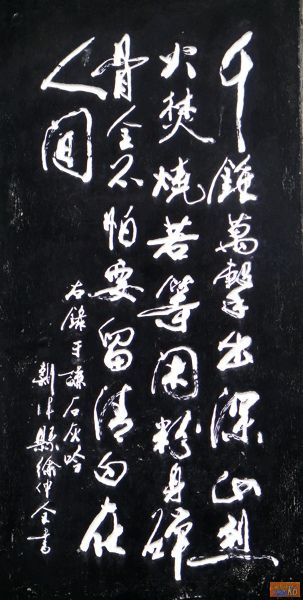 千錘萬擊出深山烈
火焚燒若等閑粉身碎
骨全不怕要留清白在
人間
右錄于謙石灰吟
新津縣徐仲全書